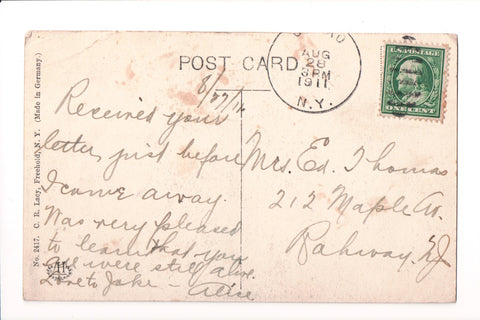 POST CARD
AUG
28
3 PM
1911
N.Y.
U.S. POSTAGE
ONE CENT
8/27/11
Received your
letter just before
I came away.
Was very pleased
to learn that you
all were still alive.
Love to Jake - Alice
Mrs. Ed. Thomas
212 Maple Av.
Rahway, NJ
No. 2417. C. R. Lacy, Freehold, N. Y. (Made in Germany.)